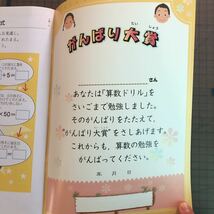 がんばり大賞
たい しょう
さん
あなたは「算数ドリル」を
さいごまで勉強しました。
そのがんばりをたたえて、
"がんばり大賞"をさしあげます。
これからも、算数の勉強を
がんばってください。
年 月 日
+5=
×50=